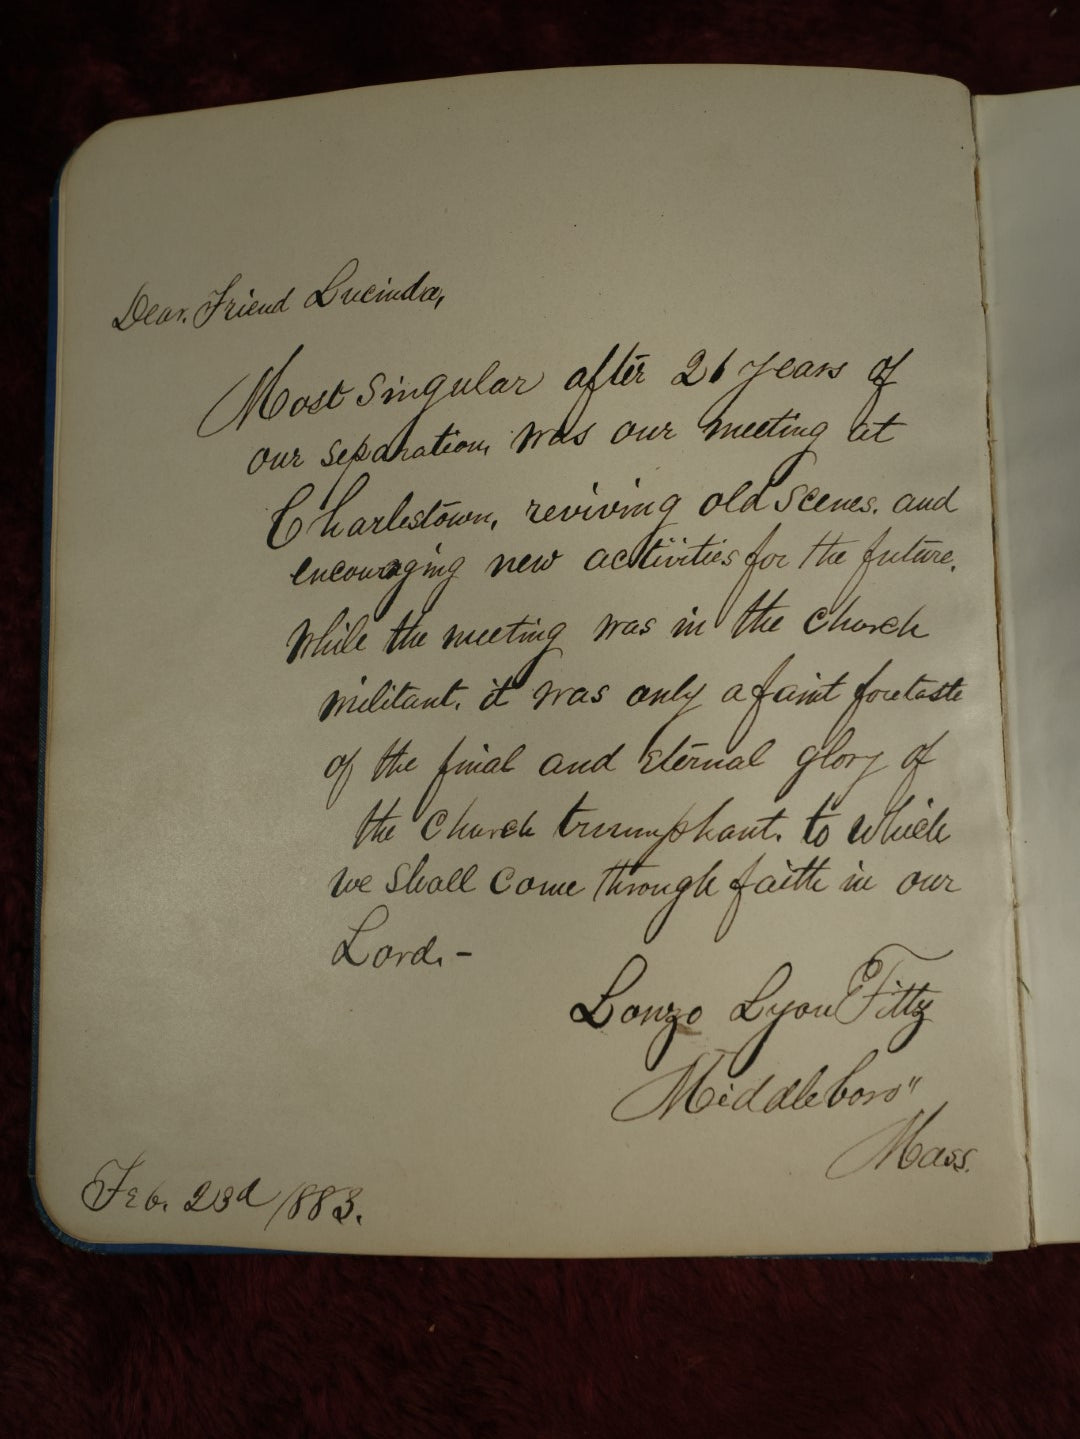 Dear Friend Lucinda,
Most Singular after 21 years of
our separation, was our meeting at
Charlestown, reviving old Scenes, and
encouraging new activities for the future.
While the meeting was in the Church
militant, it was only a faint foretaste
of the final and eternal glory of
the Church triumphant, to which
we Shall Come through faith in our
Lord.-
Lonzo Lyon Fittz
Middleboro"
Mass.
Feb. 23d 1883.